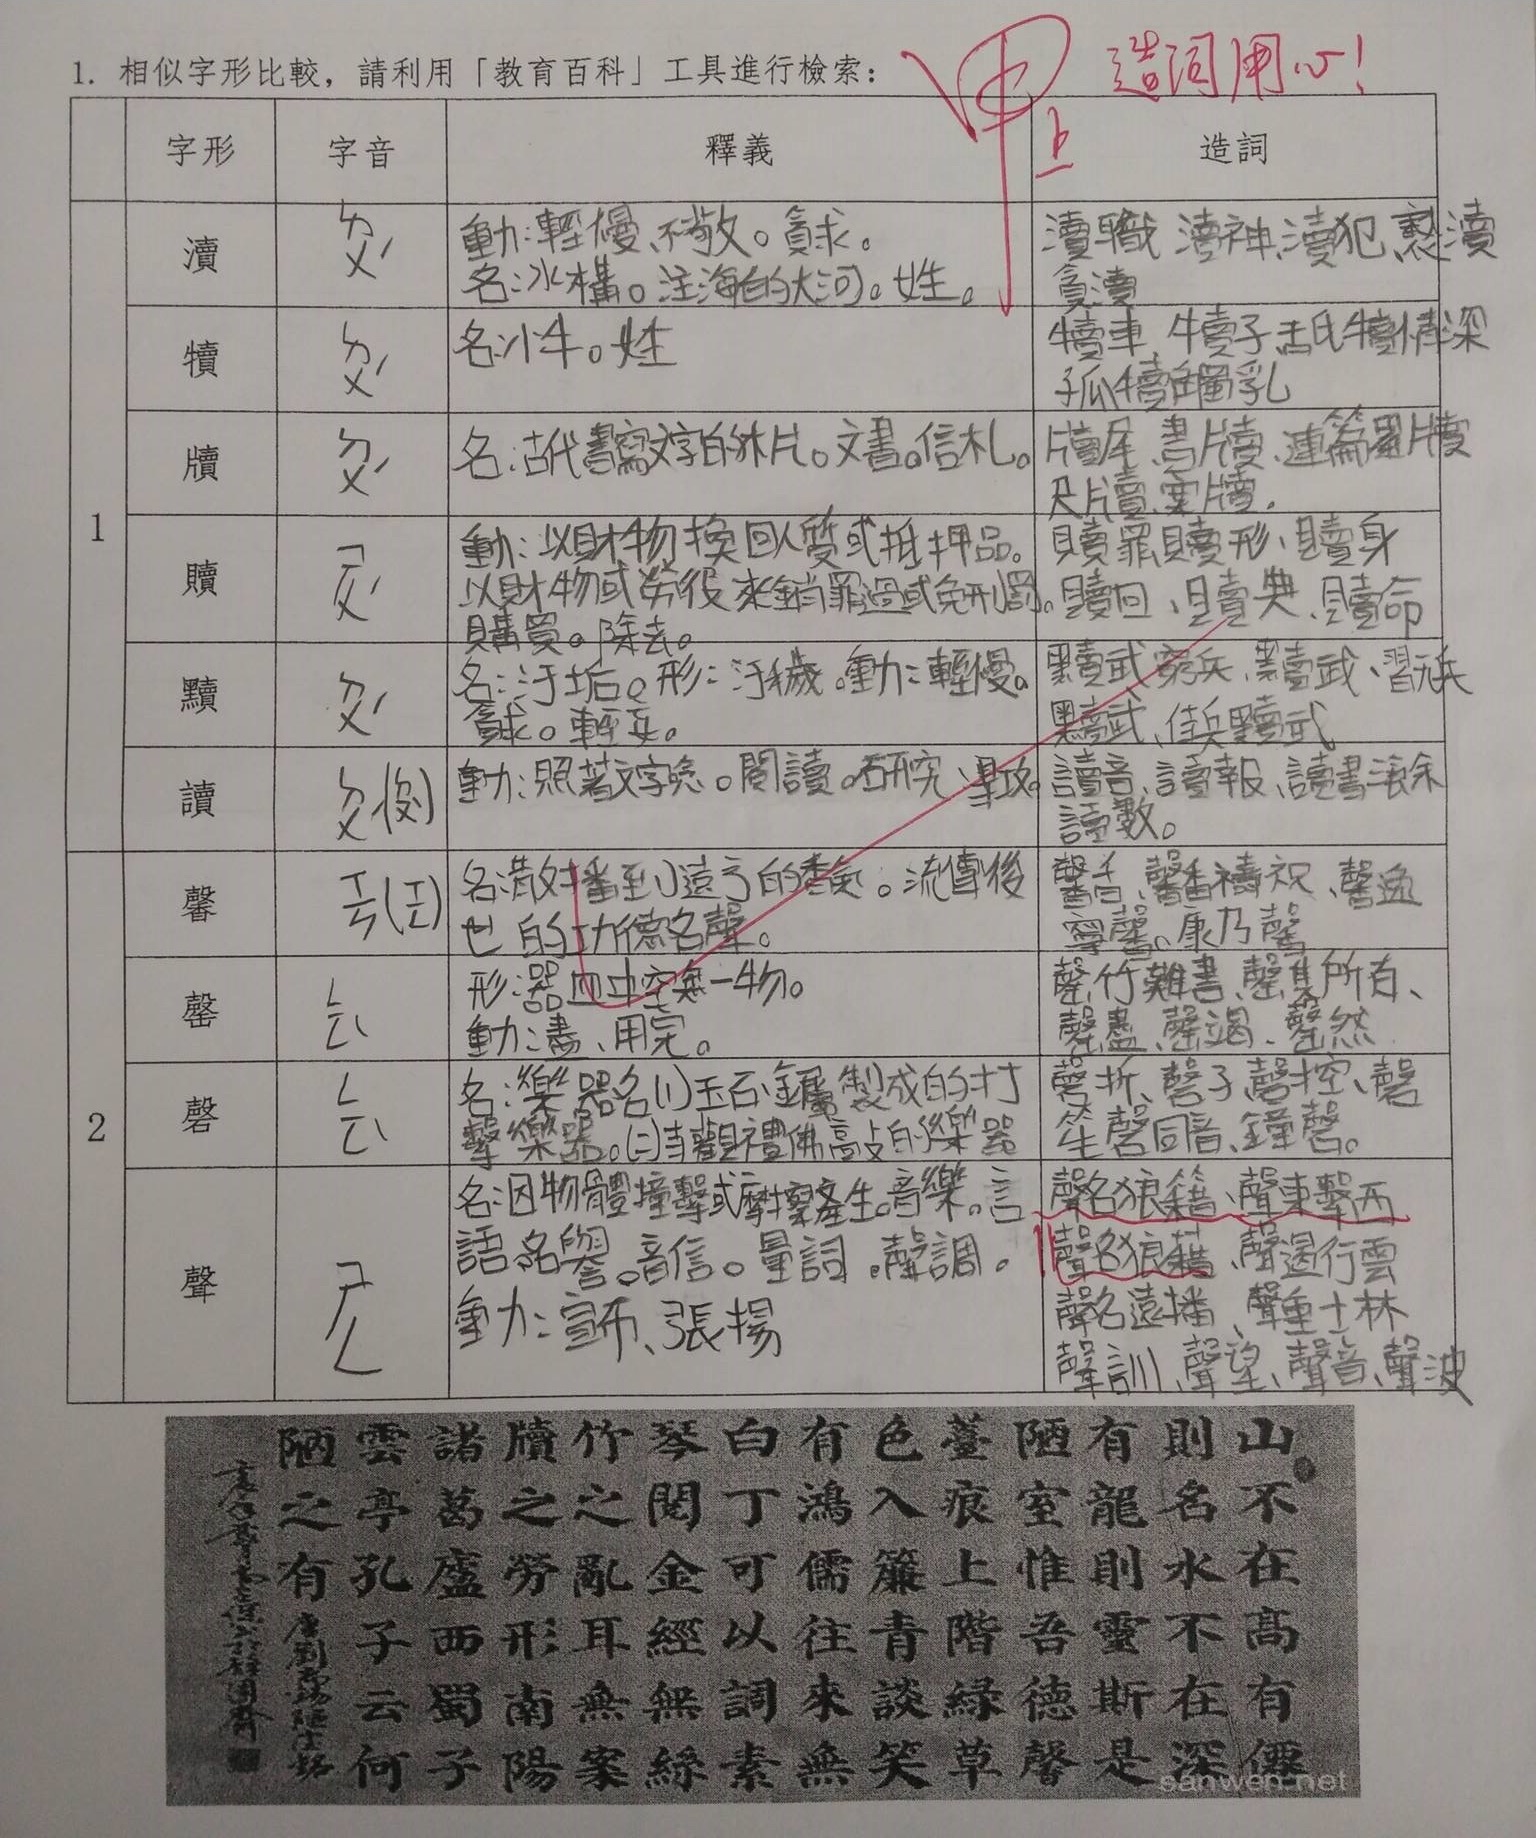 1. 相似字形比較，請利用「教育百科」工具進行檢索：
甲上 造詞用心！
字形 字音 釋義 造詞
1
瀆 ㄉㄨˊ
動：輕慢、不敬。貪求。
名：水構。注海的大河。姓。
瀆職 瀆神、瀆犯、褻瀆
貪瀆
犢 ㄉㄨˊ
名：小牛。姓
犢車 犢子、舐犢情深
孤犢觸乳
牘 ㄉㄨˊ
名：古代書寫文字的木片。文書。信札。
牘尾、書牘、連篇累牘
尺牘、案牘。
贖 ㄕㄨˊ
動：以財物換回人質或抵押品。
以財物或勞役來銷罪過或免刑罰。
購買。除去。
贖罪贖形、贖身
贖回、贖典、贖命
黷 ㄉㄨˊ
名：汙垢。形：汙穢。動：輕慢。
貪求。輕妄。
黷武窮兵、黷武、習玩兵
黷武、佳兵黷武
讀 ㄉㄨˊ(ㄉㄡˋ)
動：照著文字唸。閱讀。研究、畢攻。
讀音、讀報、讀書滾余
讀數。
2
馨 ㄒㄧㄣ(ㄒㄧㄥ)
名：散播到遠方的香氣。流傳後
世的功德名聲。
馨香、馨香禱祝、馨逸
寧馨。康乃馨
罄 ㄑㄧㄥˋ
形：器皿中空無一物。
動：盡、用完。
罄竹難書、罄其所有、
罄盡、罄竭、罄然
磬 ㄑㄧㄥˋ
名：樂器名(1)玉石、金屬製成的打
擊樂器。(二)寺觀禮佛敲的樂器
磬折、磬子、磬控、磬
笙磬同音、鐘磬。
聲 ㄕㄥ
名：因物體撞擊或摩擦產生。音樂。言
語、名譽。音信。量詞。聲調。
動：宣布、張揚
聲名狼籍、聲東擊西
聲名狼藉、聲遏行雲
聲名遠播、聲重士林
聲訓、聲望、聲音、聲波
山不在高有僊
則名水不在深
有龍則靈斯是
陋室惟吾德馨
薹痕上階緑草
色入簾青談笑
有鴻儒往來無
白丁可以調素
琴閱金經無絲
竹之亂耳無案
牘之勞形南陽
諸葛廬西蜀子
雲亭孔子云何
陋之有
唐劉禹錫陋室銘
sanwen.net